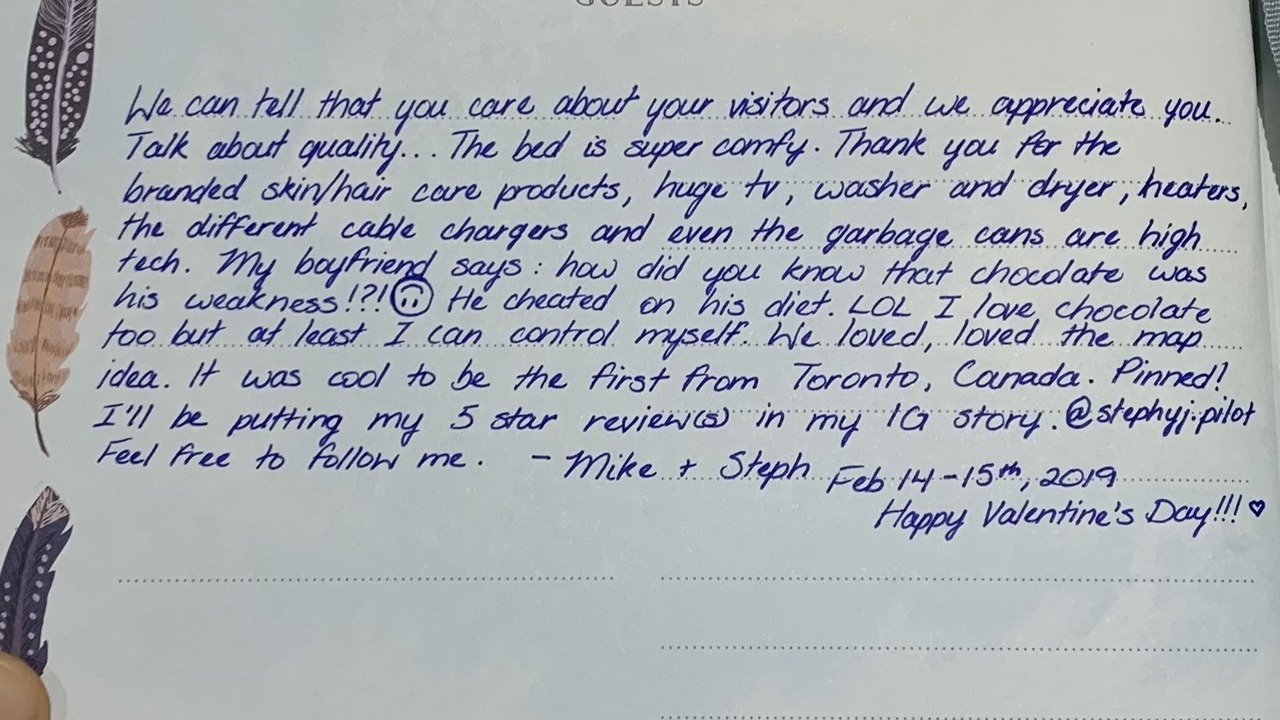 GUESTS
We can tell that you care about your visitors and we appreciate you.
Talk about quality... The bed is super comfy. Thank you for the
branded skin/hair care products, huge tv, washer and dryer, heaters,
the different cable chargers and even the garbage cans are high
tech. My boyfriend says: how did you know that chocolate was
his weakness!?!🙃 He cheated on his diet. LOL I love chocolate
too but at least I can control myself. We loved, loved the map
idea. It was cool to be the first from Toronto, Canada. Pinned!
I'll be putting my 5 star review(s) in my IG story. @stephyj.pilot
Feel free to follow me. - Mike + Steph Feb 14-15th, 2019
Happy Valentine's Day!!! ♡